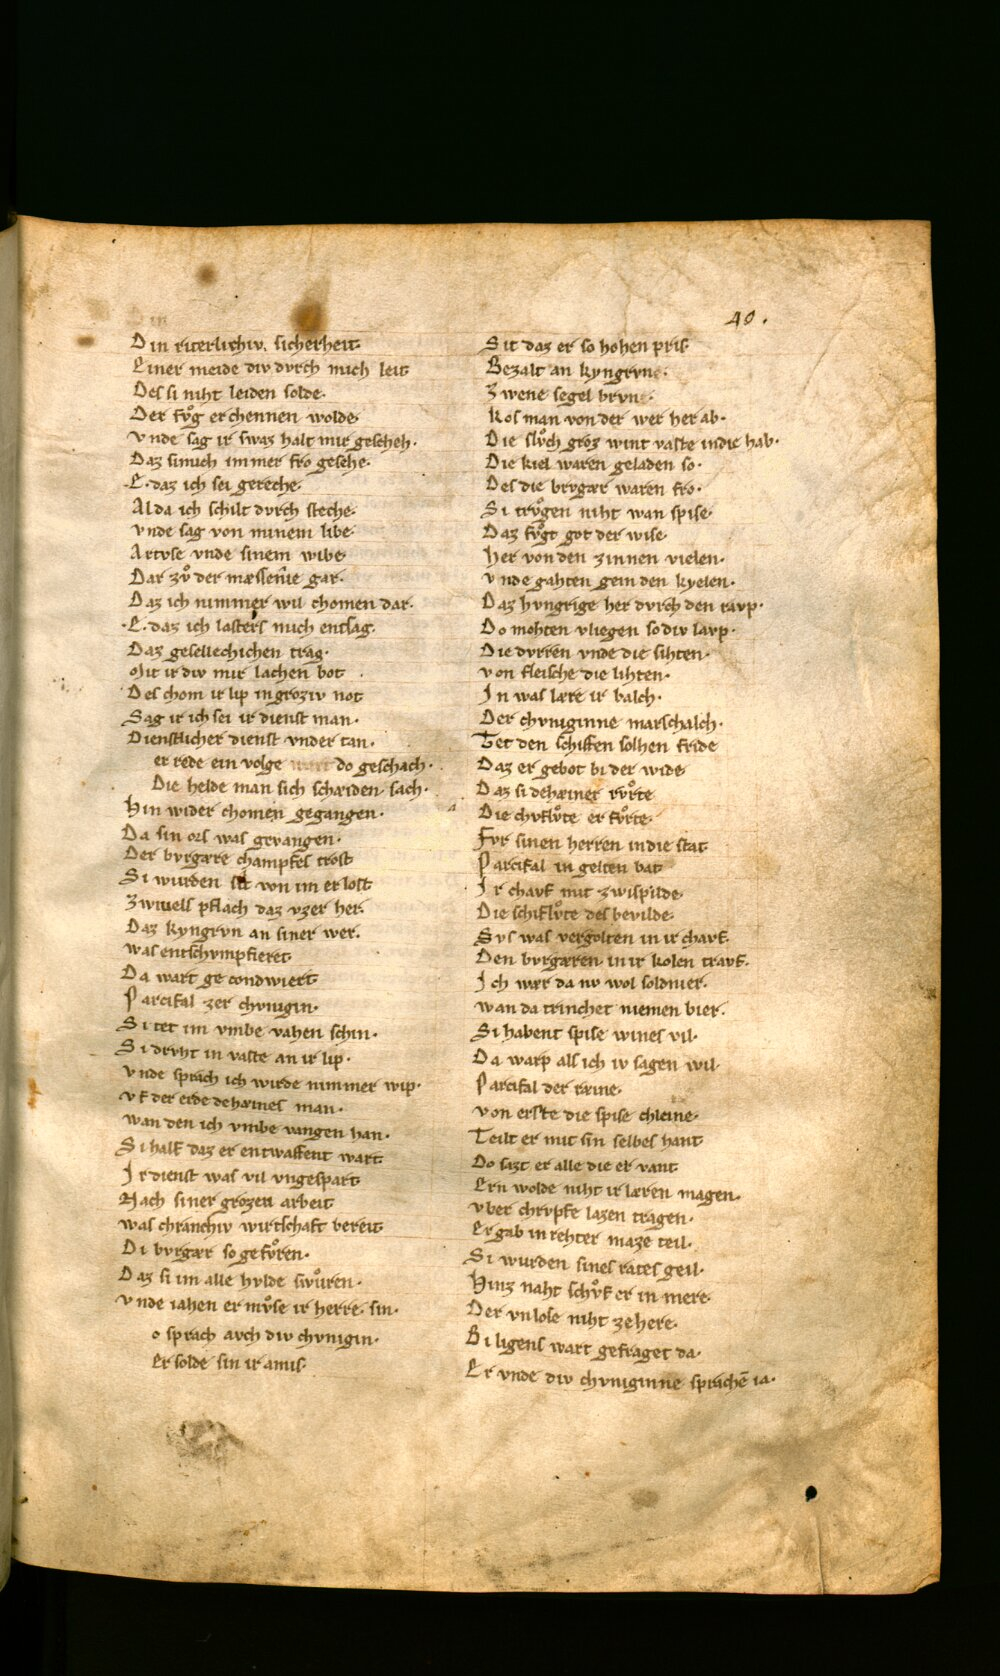 40.
Din riterlichiv. sicherheit.
Einer meide div dvrch mich leit
Des si niht leiden solde.
Der fvͦg erchennen wolde.
vnde sag ir swaz halt mir gescheh.
Daz simich immer fro gesehe.
E. daz ich sei gereche.
Alda ich schilt dvrch steche.
vnde sag von minem libe.
Artvse vnde sinem wibe.
Dar zvͦ der mæssenîe gar.
Daz ich nimmer wil chomen dar.
E. daz ich lasters mich entsag.
Daz gesellechichen trag.
Mit ir div mir lachen bot
Des chom ir lip in groziv not
Sag ir ich sei ir dienst man.
Dienstlicher dienst vnder tan.
er rede ein volge wart do geschach.
Die helde man sich schæiden sach.
Hin wider chomen gegangen.
Da sin ors was gevangen.
Der bvrgære champfes trost
Si wurden sit von im erlost
Zwivels pflach daz vzer her.
Daz kyngrvn an siner wer.
was entschvmpfieret.
Da wart ge condwiert
Parcifal zer chvnigin.
Si tet im vmbe vahen schin.
Si drvht in vaste an ir lip.
vnde sprach ich wirde nimmer wip.
vf der erde dehæines man.
wan den ich vmbe vangen han.
Si half daz er entwaffent wart
Ir dienst was vil vngespart
Nach siner grozen arbeit
was chranchiv wirtschaft bereit
Di bvrgær so gefvͦren.
Daz si im alle hvlde swvͦren.
vnde iahen er mvͤse ir herre. sin.
o sprach avch div chvnigin.
Er solde sin ir amis.
Sit daz er so hohen pris.
Bezalt an kyngrvne.
Zwene segel brvne.
kos man von der wer her ab.
Die slvͦch groz wint vaste indie hab.
Die kiel waren geladen so.
Des die brvgær waren fro.
Si trvͦgen niht wan spise.
Daz fvͦgt got der wise
her von den zinnen vielen.
vnde gahten gein den kyelen.
Daz hvngrige her dvrch den ravp.
Do mohten vliegen so div lavp.
Die dvrren vnde die sihten.
von fleische die lihten.
In was lære ir balch.
Der chvniginne marschalch.
Tet den schiffen solhen fride
Daz er gebot bi der wide
Daz si dehæiner rvͦrte
Die chvflvͤte er fvͦrte.
Fvr sinen herren indie stat
Parcifal in gelten bat
Ir chavf mit zwispilde.
Die schiflvͤte des bevilde.
Svs was vergolten in ir chavf.
Den bvrgæren in ir kolen travf.
Ich wær da nv wol soldnier.
wan da trinchet niemen bier.
Si habent spise wines vil.
Da warp alls ich iv sagen wil.
Parcifal der ræine.
von erste die spise chleine.
Teilt er mit sin selbes hant
Do sazt er alle die er vant
Ern wolde niht ir læren magen.
vber chrvpfe lazen tragen.
Er gab in rehter maze teil.
Si wurden sines rates geil.
Hinz naht schvͦf er in mere.
Der vnlose niht zehere.
Bi ligens wart gefraget da.
Er vnde div chvniginne sprachē ia.